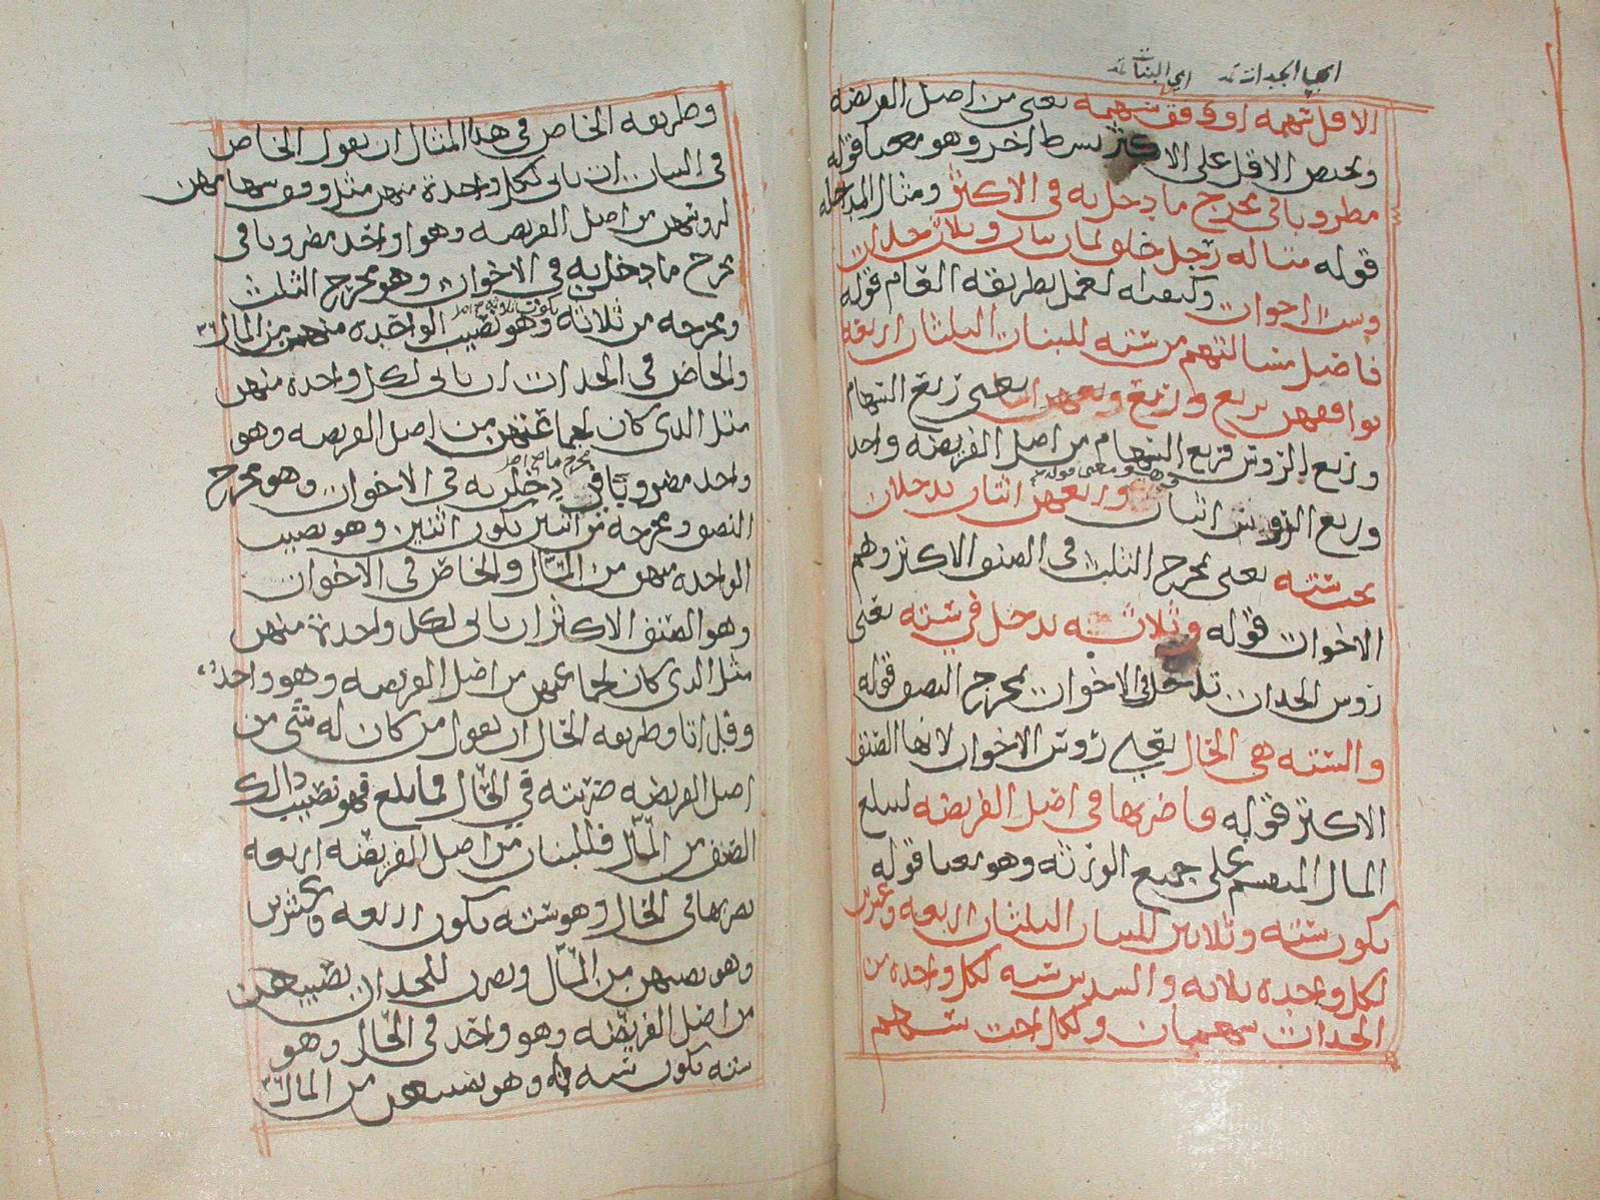 اي الجدات اي البنات
الاقل سهمه او وفق سهمه يعني من اصل الفريضه
ويختص الاقل على الاكثر بشرط اخر وهو معنا قوله
مضروبا في مخرج ما دخل به في الاكثر ومثال المداخله
قوله مثاله رجل خلف ثمان بنات وثلاث جدات
وست اخوات وكيفيه العمل بطريقه العام قوله
فاصل مسالتهم من سته للبنات الثلثان اربعه
يوافقهن بربع وربع يعني ربع السهام
وربع الروس فربع السهام من اصل الفريضه واحد
وربع الروس اثنان وهو معنى قوله وربعهن اثنان يدخلان
تحت سته يعني بمخرج الثلث في الصنف الاكثر وهم
الاخوات قوله وثلاثه يدخل في سته يعني
روس الجدات تدخل في الاخوات بمخرج النصف قوله
والسته هي الحال يعني روس الاخوات لانها الصنف
الاكثر قوله فاضربها في اصل الفريضه ليبلغ
المال المنقسم على جميع الورثه وهو معنا قوله
يكون سته وثلاثين للبنات الثلثان اربعه وعشرين
لكل واحده ثلاثه والسدس سته لكل واحده من
الجدات سهمان ولكل اخت سهم
وطريقه الخاص في هذا المثال ان يقول الخاص
في البنات ان ياتي لكل واحدة منهن مثل وفق سهامهن
لروسهن من اصل الفريضه وهو واحد مضروبا في
مخرج ما دخل به في الاخوات وهو مخرج الثلث
ومخرجه من ثلاثه يكون ثلاثه وهو نصيب الواحده منهن من المال ٣٦
والخاص في الجدات ان ياتي لكل واحده منهن
مثل الذي كان لجماعتهن من اصل الفريضه وهو
واحد مضروبا في مخرج ما دخلن به في الاخوات وهو مخرج
النصف ومخرجه من اثنين يكون اثنين وهو نصيب
الواحده منهن من المال والخاص في الاخوات
وهو الصنف الاكثر ان ياتي لكل واحدة منهن
مثل الذي كان لجماعتهن من اصل الفريضه وهو واحد
وطريقه الحال ان يقول من كان له شي من
اصل الفريضه ضربته في الحال فما بلغ فهو نصيب ذالك
الصنف من المال فللبنات من اصل الفريضه اربعه
تضربها في الحال وهو سته يكون اربعه وعشرين
وهو نصيبهن من المال وتضرب للجدات نصيبهن
من اصل الفريضه وهو واحد في الحال وهو
سته يكون سته وهو نصيبهن من المال ٣٦